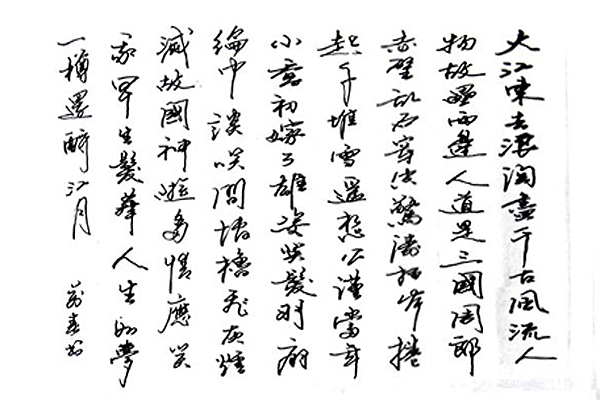 大江東去浪淘盡千古風流人
物故壘西邊人道是三國周郎
赤壁乱石穿空驚濤拍岸捲
起千堆雪遥想公瑾當年
小喬初嫁了雄姿英髮羽扇
綸巾談笑間檣櫓飛灰煙
滅故國神遊多情應笑
我早生髮華人生如夢
一樽還酹江月